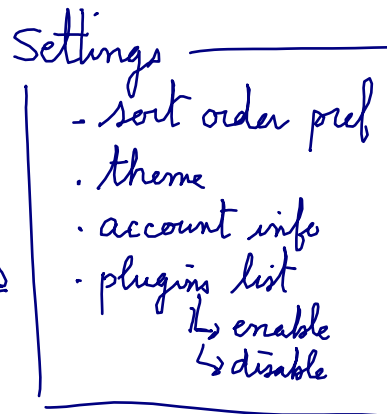 Settings
- sort order pref
. theme
. account info
. plugins list
↳ enable
↳ disable